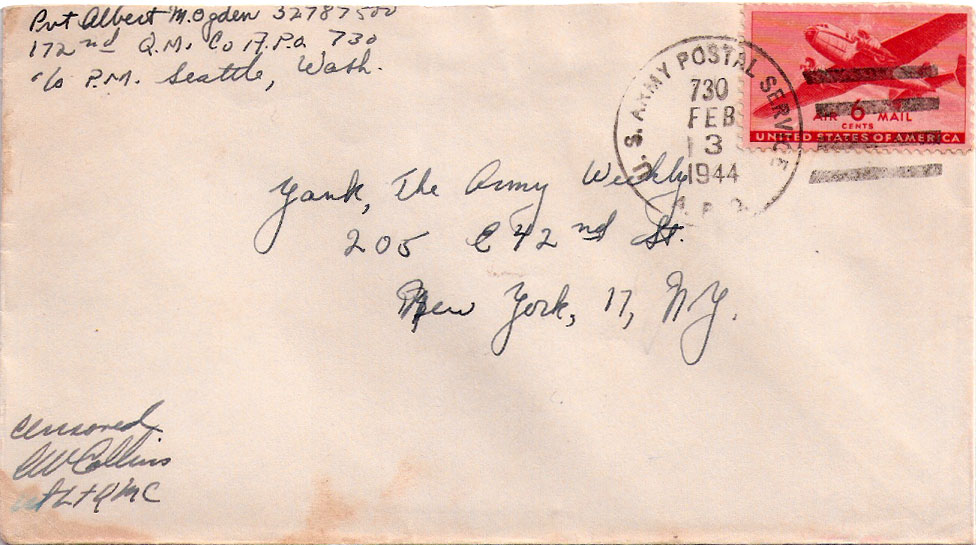 Pvt Albert M. Ogden 32787500
172nd Q.M. Co A.P.O. 730
c/o P.M. Seattle, Wash.
U. S. ARMY POSTAL SERVICE
730
FEB
13
1944
A. P. O.
AIR 6 MAIL
CENTS
UNITED STATES OF AMERICA
Yank, The Army Weekly
205 E 42nd St.
New York, 17, N.Y.
censored
Collins
QMC